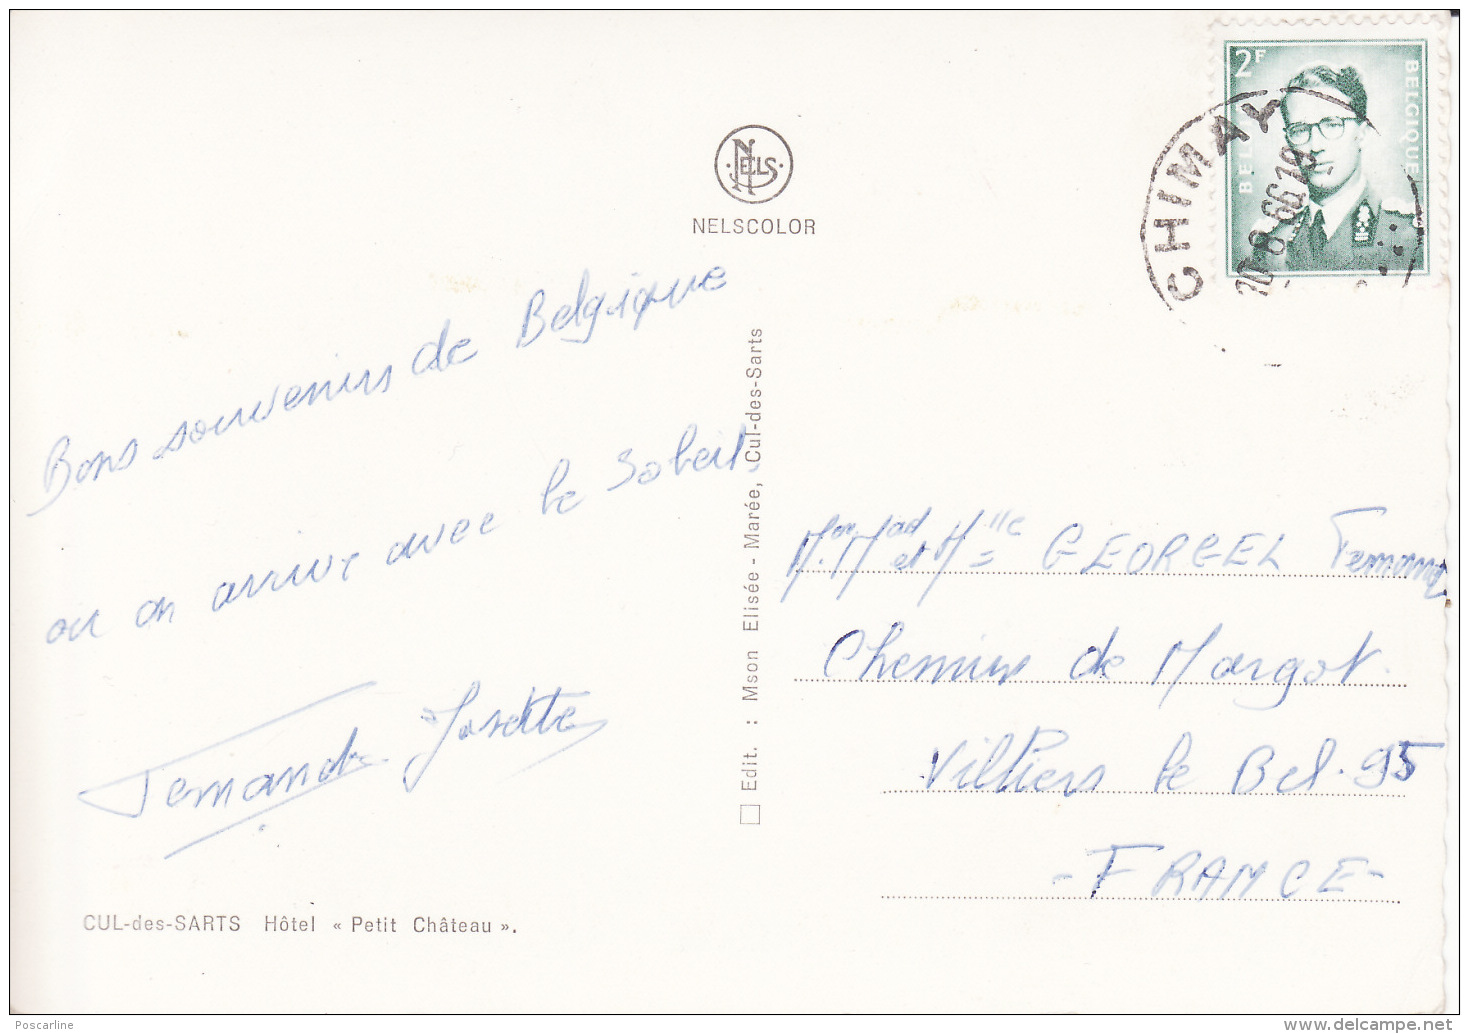 2F
BELGIQUE
CHIMAY
NELS
NELSCOLOR
Bons souvenirs de Belgique
ou on arrive avec le soleil.
Fernande Josette
CUL-des-SARTS Hôtel « Petit Château ».
Edit. : Mson Elisée - Marée, Cul-des-Sarts
Mon. Mad et Melle GEORGEL Fernand
Chemins de Margot.
Villiers le Bel. 95
- FRANCE -
Poscarline
delcampe.net